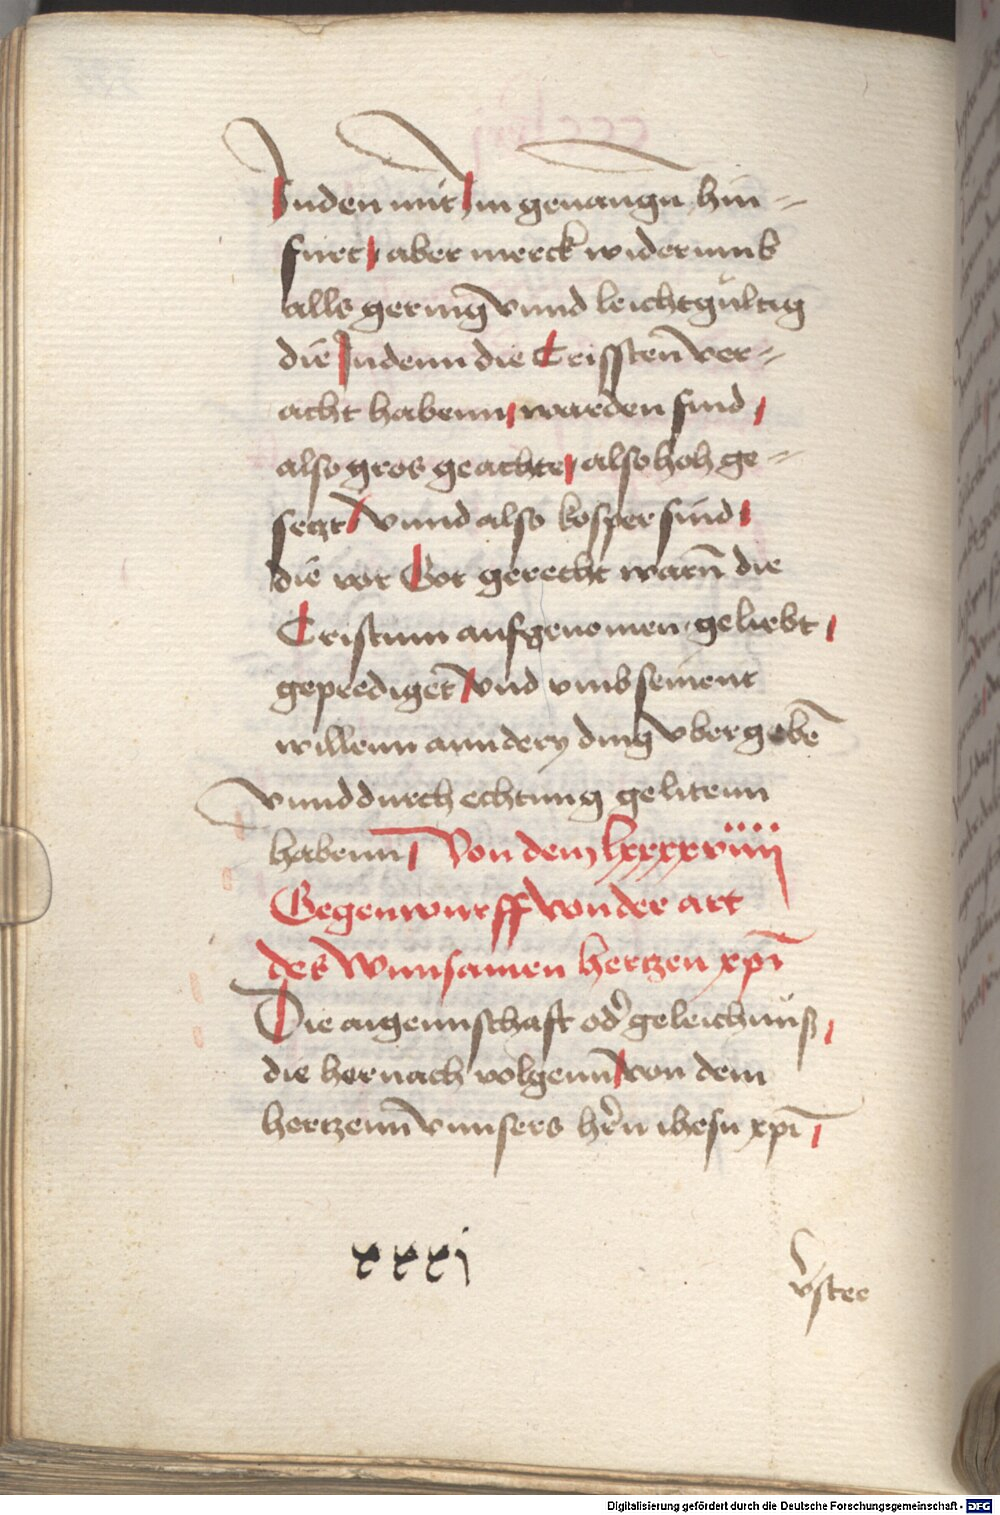 Juden mit im genangn̄ hin=
furt aber merck widerumb
alls gering vnnd leichtgůltig
die Judenn die Crissten̄ ver=
acht habenn warden sind
also gros geachtet also hoh ge=
setzt vnnd also kosper sind
die vor Got gerecht warn̄ die
Cristum aufgenomen geliebt
geprediget vnd vmb seinent
willenn anndery ding vbergebē
vnnd durchechtung gelitenn
habenn Von dem lxxxxviiii
Gegenwurff von der art
des wunsamen hertzen xpi
Die aigennschafft od' geleichnuß
die hernach volgenn von dem
hertzenn vnnsers hr̄n ihesu xpi
xxxi
v̄stee
Digitalisierung gefördert durch die Deutsche Forschungsgemeinschaft - DFG